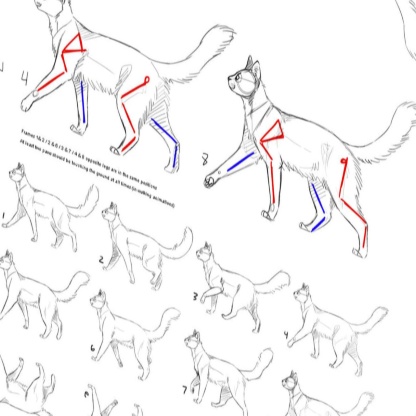 4
8
Frames 1&5 / 2&6 / 3&7 / 4&8 opposite legs are in the same positions
At least two paws should be touching the ground at all times (in walking animation)
1
2
3
4
6
7